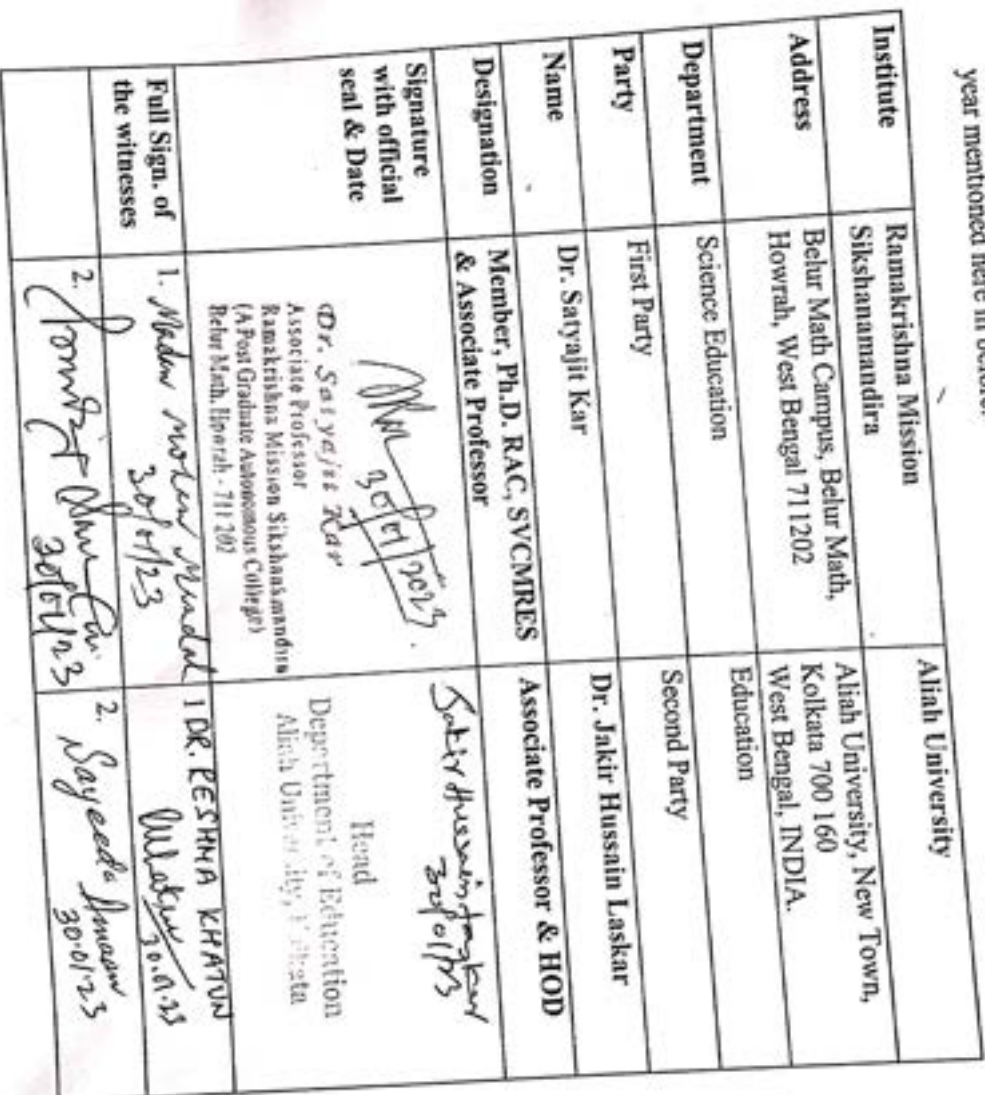 year mentioned here in before.
Institute
Ramakrishna Mission
Sikshanamandira
Aliah University
Address
Belur Math Campus, Belur Math,
Howrah, West Bengal 711202
Aliah University, New Town,
Kolkata 700 160
West Bengal, INDIA.
Department
Science Education
Education
Party
First Party
Second Party
Name
Dr. Satyajit Kar
Dr. Jakir Hussain Laskar
Designation
Member, Ph.D. RAC, SVCMRES
& Associate Professor
Associate Professor & HOD
Signature
with official
seal & Date
30/01/2023
Dr. Satyajit Kar
Associate Professor
Ramakrishna Mission Sikshanamandira
(A Post Graduate Autonomous College)
Belur Math, Howrah - 711 202
Jakir Hussain Laskar
30/01/23
Head
Department of Education
Aliah University, Kolkata
Full Sign. of
the witnesses
1. Madan Mohan Mandal
30/01/23
1 DR. RESHMA KHATUN
30.01.23
2.
30/01/23
2. Sayeeda
30.01.23